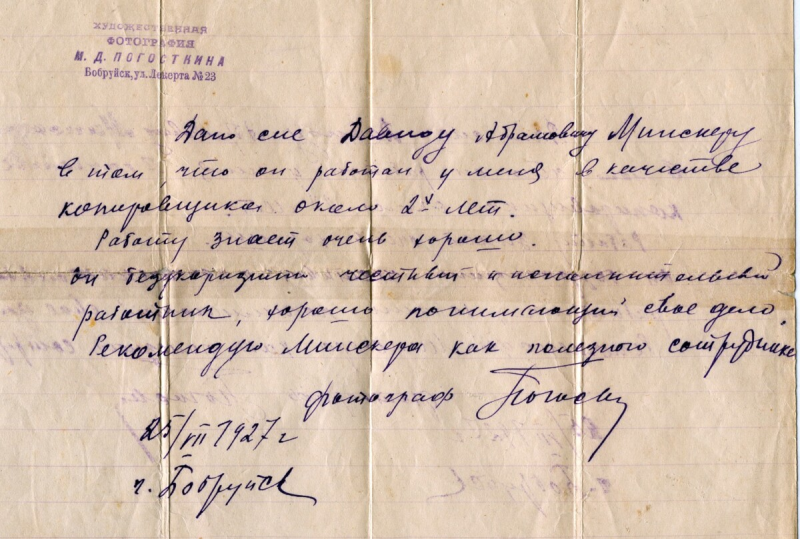 ХУДОЖЕСТВЕННАЯ
ФОТОГРАФИЯ
М. Д. ПОГОСТКИНА
Бобруйск, ул. Лекерта № 23
Дано сие Давиду Абрамовичу Минскеру
в том, что он работал у меня в качестве
копировщика около 2х лет.
Работу знает очень хорошо.
Он безукоризнено честный и исполнительный
работник, хорошо понимающий свое дело.
Рекомендую Минскера как полезного сотрудника
фотограф
25/VII 1927 г
г. Бобруйск